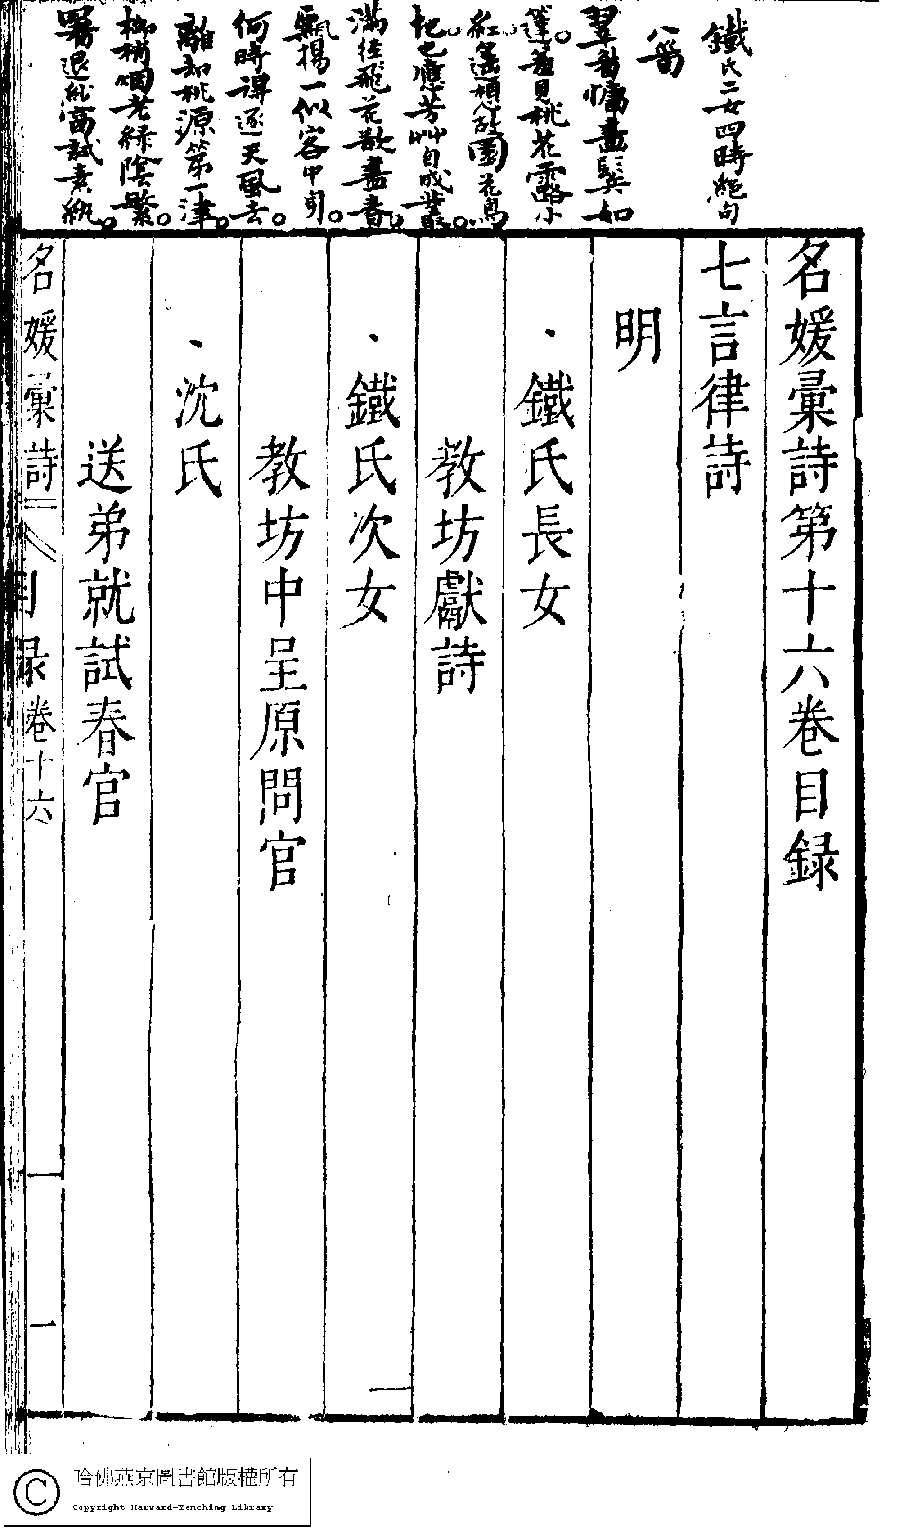 鐵氏二女四時絕句
八首
翠翹慵畫鬢如
蓬。羞見桃花露小
紅。遙想故園花鳥
地也應芳艸自成叢。
滿徑飛花欲盡春。
飄揚一似客中身。
何時得逐天風去。
離却桃源第一津。
柳梢煙老綠陰繁。
暑退紗窗試素紈。
名媛彙詩第十六卷目録
七言律詩
明
、鐵氏長女
教坊獻詩
、鐵氏次女
教坊中呈原問官
、沈氏
送弟就試春官
名媛彙詩 目録卷十六 一
哈佛燕京圖書館版權所有
Copyright Harvard-Yenching Library